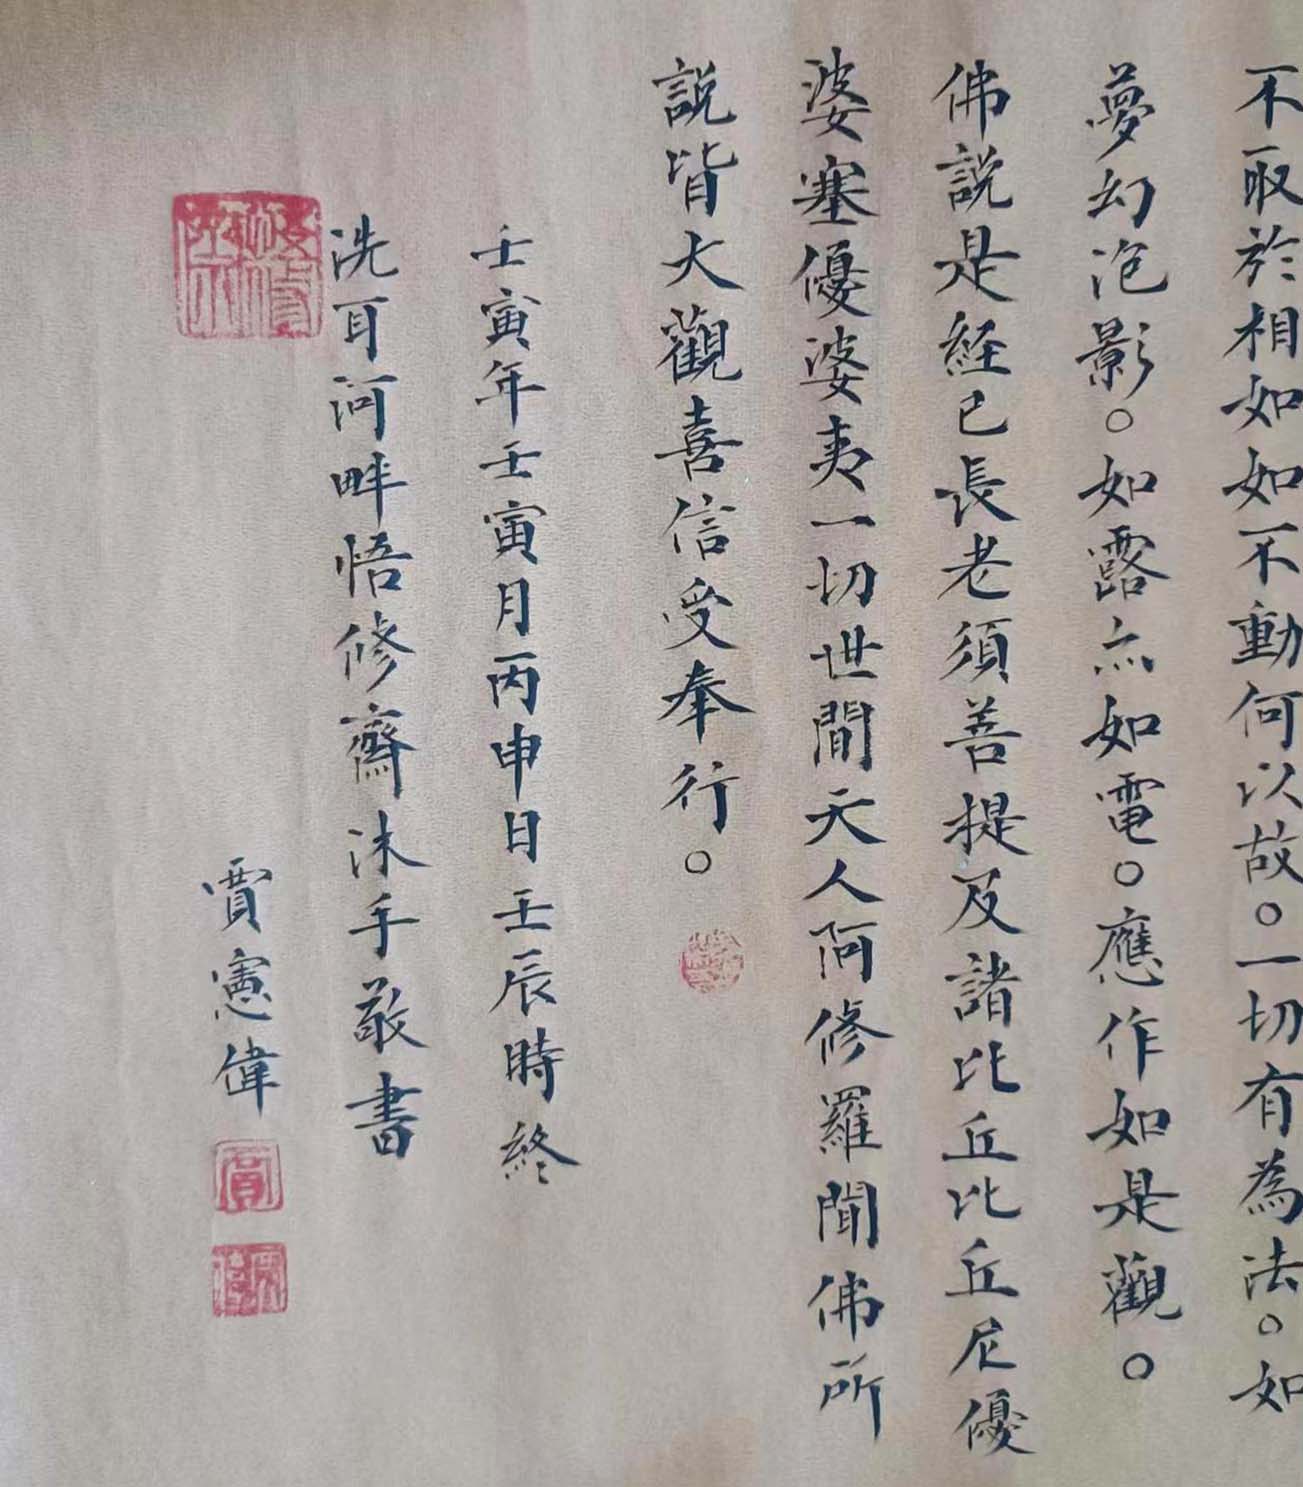 不取於相如如不動何以故。一切有為法。如
夢幻泡影。如露亦如電。應作如是觀。
佛說是經已長老須菩提及諸比丘比丘尼優
婆塞優婆夷一切世間天人阿修羅聞佛所
說皆大觀喜信受奉行。
壬寅年壬寅月丙申日壬辰時終
洗耳河畔悟修齋沐手敬書
賈憲偉